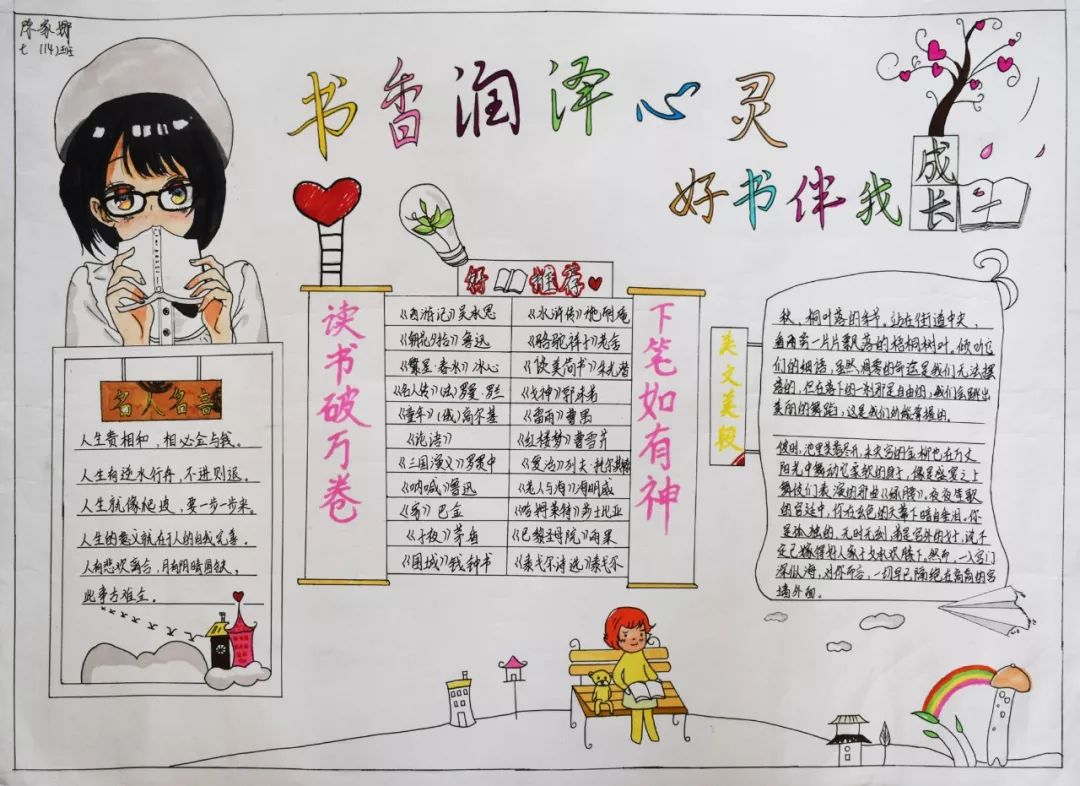 陈家娜
七（14）班
书香润泽心灵
好书伴我成长
好 推荐
读书破万卷
下笔如有神
《西游记》吴承恩
《水浒传》施耐庵
《朝花夕拾》鲁迅
《骆驼祥子》老舍
《繁星·春水》冰心
《谈美简书》朱光潜
《名人传》（法）罗曼·罗兰
《女神》郭沫若
《童年》（俄）高尔基
《雷雨》曹禺
《论语》
《红楼梦》曹雪芹
《三国演义》罗贯中
《复活》列夫·托尔斯泰
《呐喊》鲁迅
《老人与海》海明威
《家》巴金
《哈姆莱特》莎士比亚
《子夜》茅盾
《巴黎圣母院》雨果
《围城》钱钟书
《泰戈尔诗选》泰戈尔
名人名言
人生贵相和，相必会与钱。
人生有逆水行舟，不进则退。
人生就像爬坡，要一步一步来。
人生的意义就在于人的自我完善。
人有悲欢离合，月有阴晴圆缺，
此事古难全。
美文美段
秋，桐叶落的季节，站在街道中央，
看两旁一片片飘落的梧桐树叶。倾听它
们的细语，虽然凋零的命运是我们无法摆
落的，但在落下的一刹那是自由的，我们会跳出
美丽的舞蹈，这是我们所能掌握的。
彼时，池里芙蓉尽开，未央宫的金柳也在万丈
阳光中舞动它柔软的身子，像是盛宴之上
舞伎们表演的那曲《绿腰》。夜夜笙歌
的宫廷中，你在玄色的天幕下暗自垂泪。你
是孤独的，无时无刻
定已嫁得好人家子女承欢膝下。然而，一入宫门
深似海，对你而言，一切早已隔绝在高高的宫
墙外面。